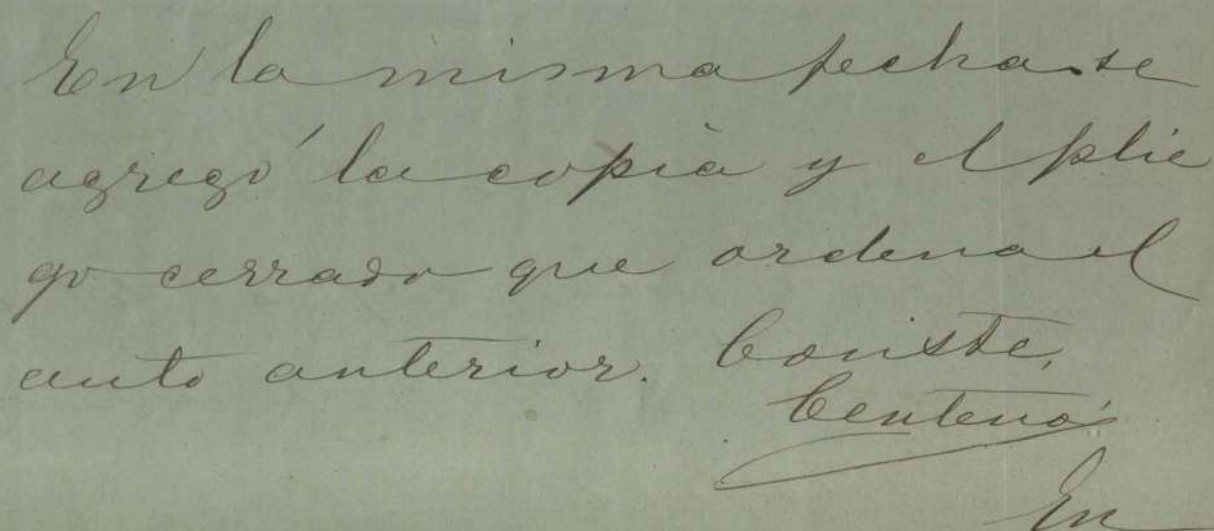 En la misma fecha se
agregó la copia y el plie
go cerrado que ordena el
auto anterior. Conste,
Centeno
En